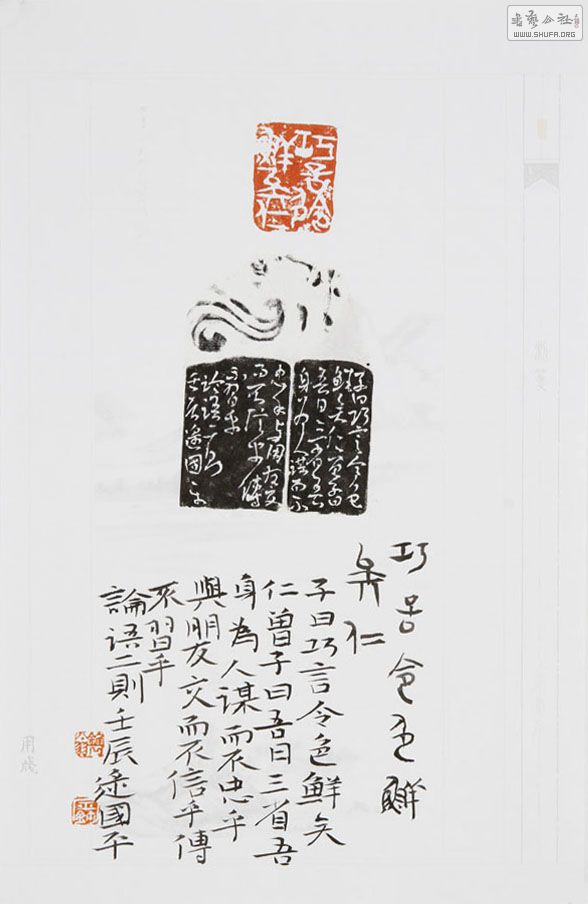 書藝公社
WWW.SHUFA.ORG
巧言令色
鮮矣仁
子曰巧言令色
鲜矣仁曾子曰
吾日三省吾
身为人謀而不
忠乎与朋友交
而不信乎傳
不習乎
论语二则
壬辰逯國平
巧言令色鮮
矣仁
子曰巧言令色鮮矣
仁曾子曰吾日三省吾
身為人谋而不忠乎
與朋友交而不信乎傳
不習乎
論语二則壬辰逯國平